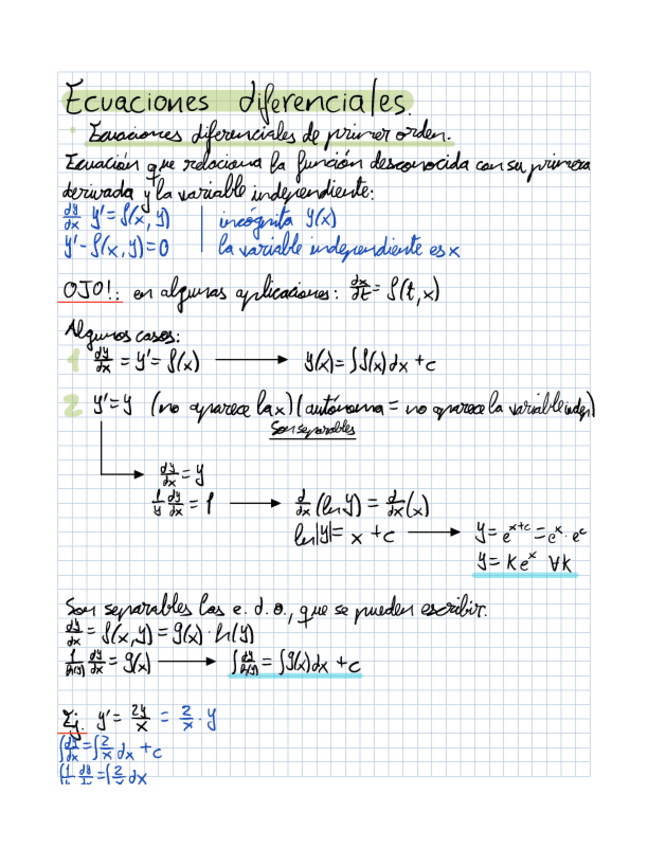 Ecuaciones diferenciales.
• Ecuaciones diferenciales de primer orden.
Ecuación que relaciona la función desconocida con su primera
derivada y la variable independiente:
dy/dx y' = f(x, y) | incógnita y(x)
y' - f(x, y) = 0 | la variable independiente es x
OJO!: en algunas aplicaciones: dx/dt = f(t, x)
Algunos casos:
1 dy/dx = y' = f(x) → y(x) = ∫f(x)dx + c
2 y' = y (no aparece la x) (autónoma = no aparece la variable indep)
Son separables
→ dy/dx = y
1/y dy/dx = 1 → d/dx (ln y) = d/dx (x)
ln|y| = x + c → y = e^(x+c) = e^x · e^c
y = Ke^x ∀k
Son separables las e.d.o., que se pueden escribir:
dy/dx = f(x, y) = g(x) · h(y)
1/h(y) dy/dx = g(x) → ∫dy/h(y) = ∫g(x)dx + c
Ej. y' = 2y/x = 2/x · y
∫dy/dx = ∫2/x dx + c
dy = ∫2 dx